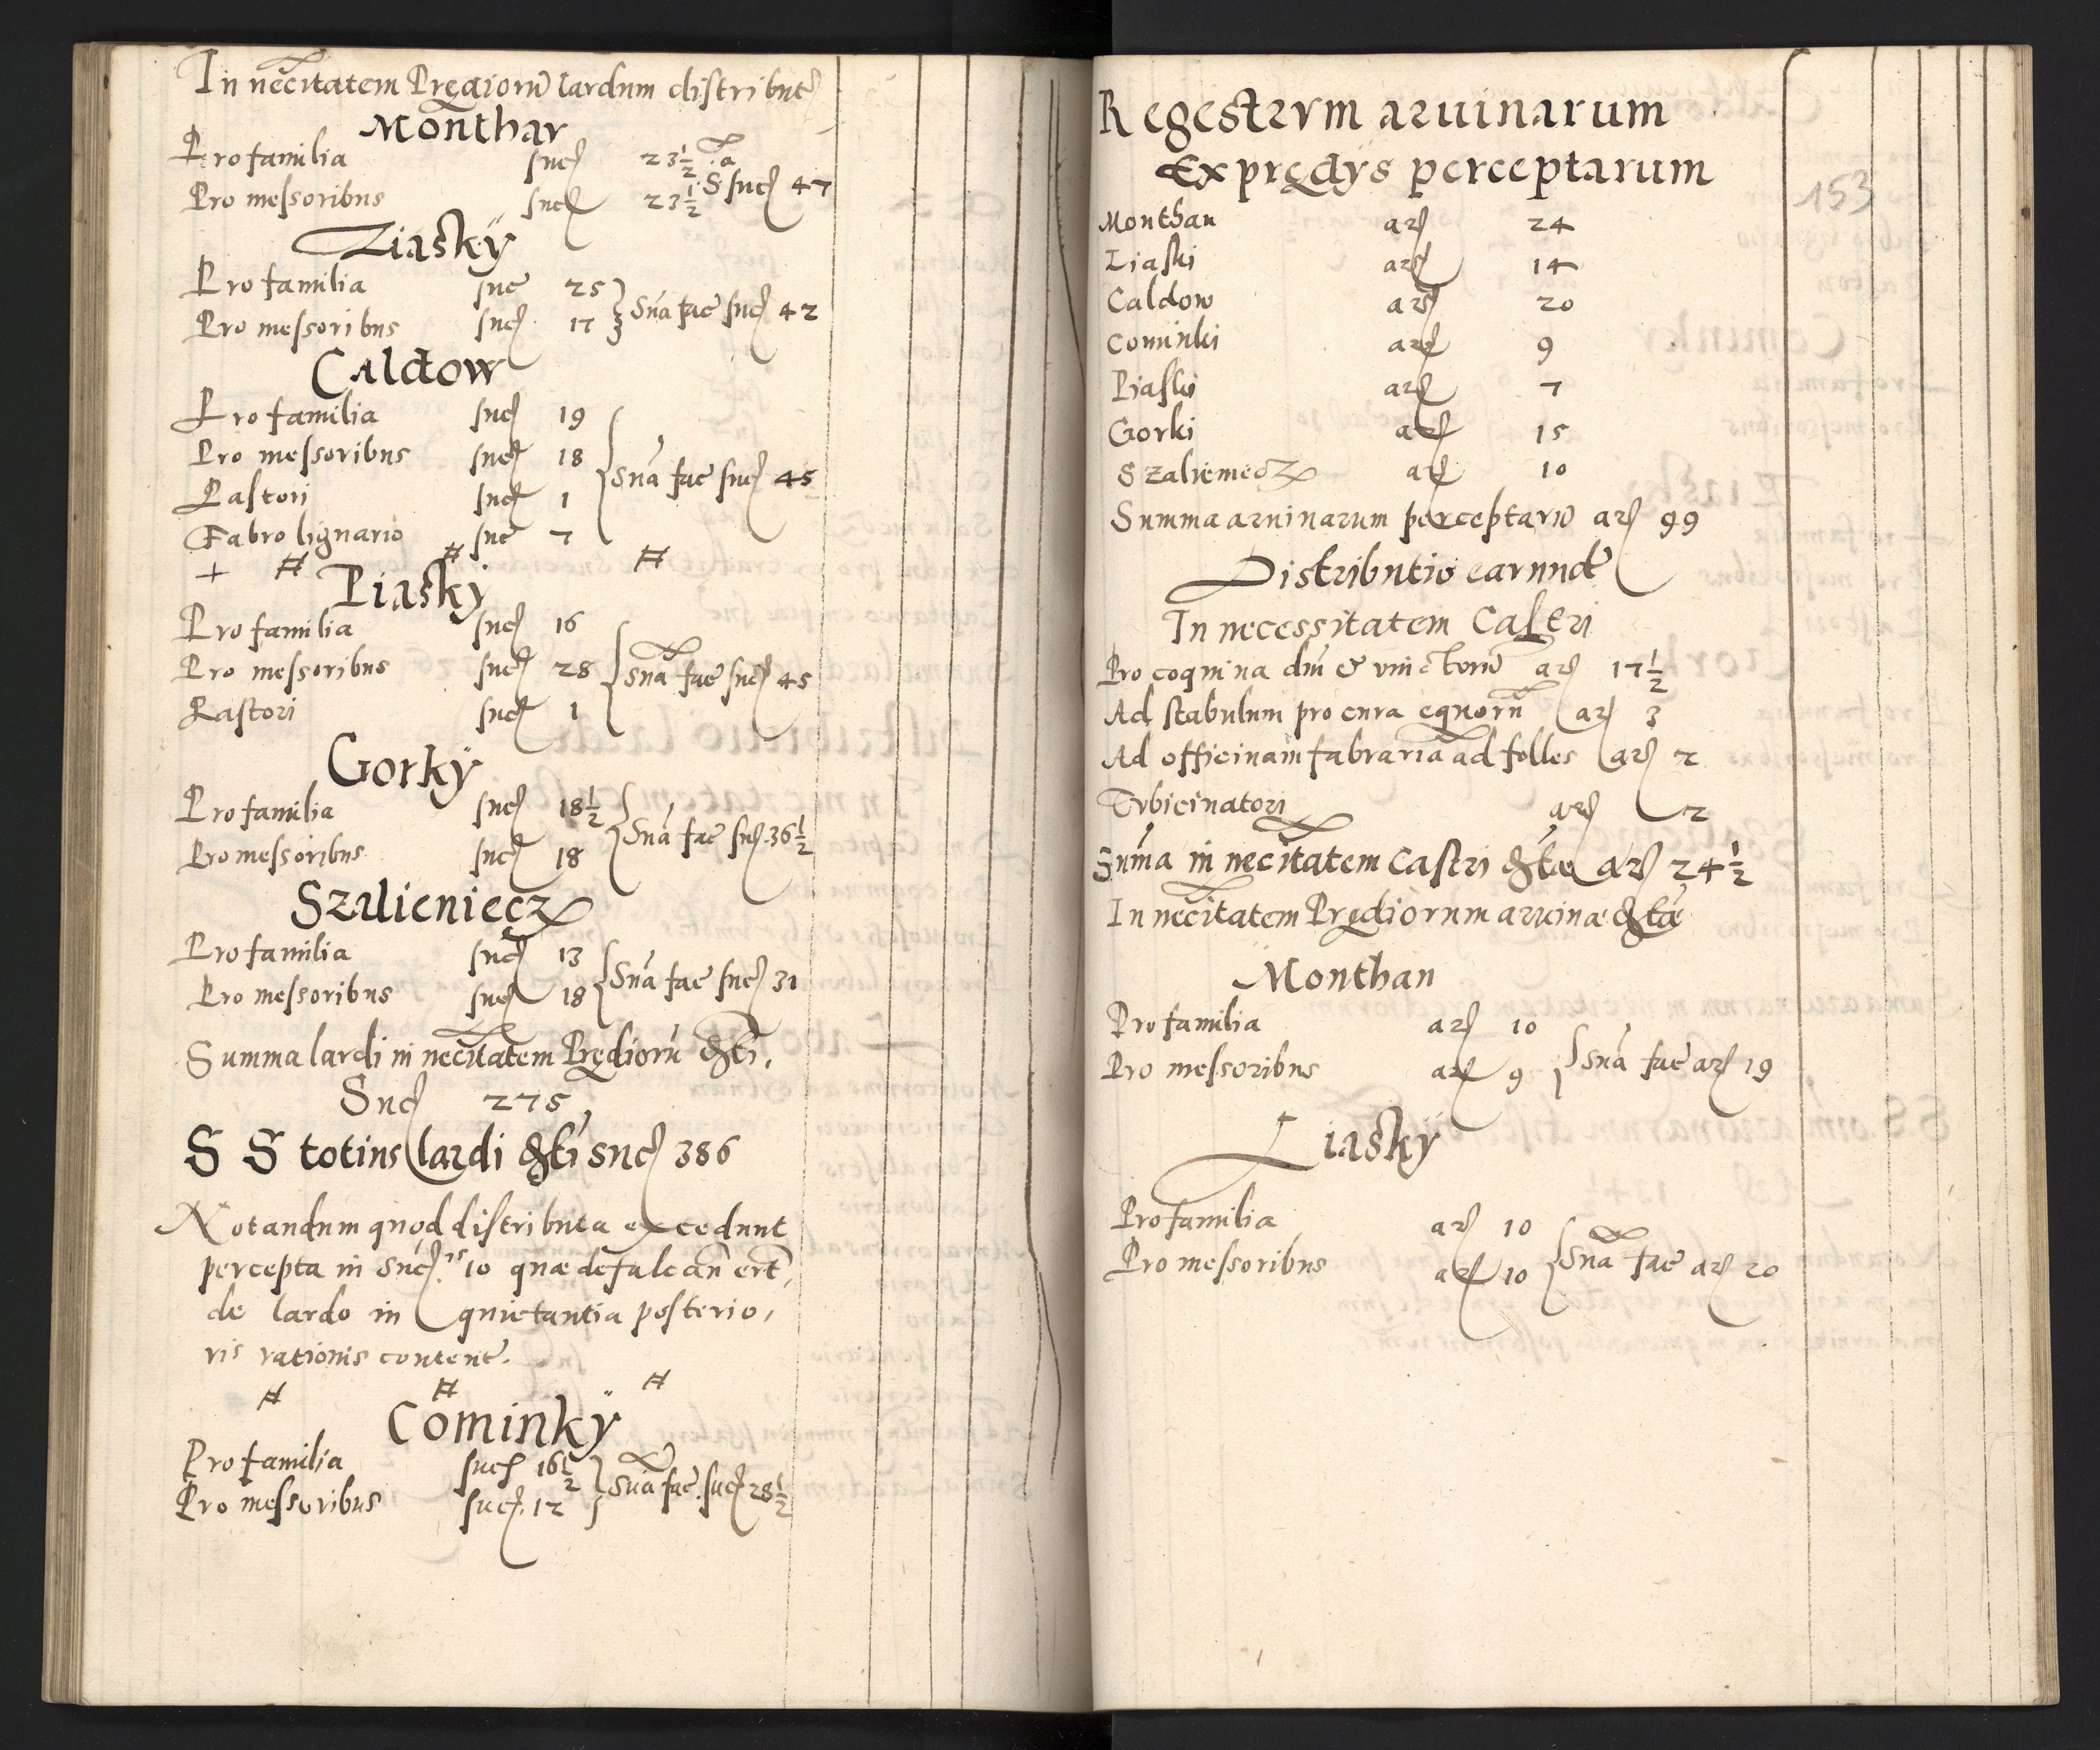 In necītatem Prędiorū lardum distributē
Monthav
Pro familia succ 23½
Pro messoribus succ 23½ S succ 47
Liasky
Pro familia succ 25
Pro messoribus succ 17 Sūa fac succ 42
Caldow
Pro familia succ 19
Pro messoribus succ 18
Sūa fac succ 45
Pastori succ 1
Fabro lignario succ 7
+ # # #
Piasky
Pro familia succ 16
Pro messoribus succ 28 Sūa fac succ 45
Pastori succ 1
Gorkÿ
Pro familia succ 18½
Sūa fac succ 36½
Pro messoribus succ 18
Szalieniecz
Pro familia succ 13
Sūa fac succ 31
Pro messoribus succ 18
Summa lardi in necītatem Prędiorū
Succ 275
S S totius lardi succ 386
Notandum quod distributa excedunt
percepta in succ 10 quæ defalcan ert
de lardo in quietantia posterio,
ris rationis content.
# # #
Cominkÿ
Pro familia succ 16½
Sūa fac succ 28½
Pro messoribus succ. 12
Regestrvm aruinarum
Ex prędÿs perceptarum
153
Monthau ar 24
Liaski ar 14
Caldow ar 20
Cominki ar 9
Piaski ar 7
Gorki ar 15
Szaliemecz ar 10
Summa aruinarum perceptarū ar 99
Distributio earundē
In necessitatem Castri
Pro coquina dni & vinctorū ar 17½
Ad stabulum pro cura equorū ar 3
Ad officinam fabrariā ad folles ar 2
Tvbicinatori ar 2
Sūma in necītatem Castri ar 24½
In necītatem Prędiorum arvinæ
Monthau
Pro familia ar 10
Sūa fac ar 19
Pro messoribus ar 9
Liaskÿ
Pro familia ar 10
Pro messoribus ar 10 Sūa fac ar 20